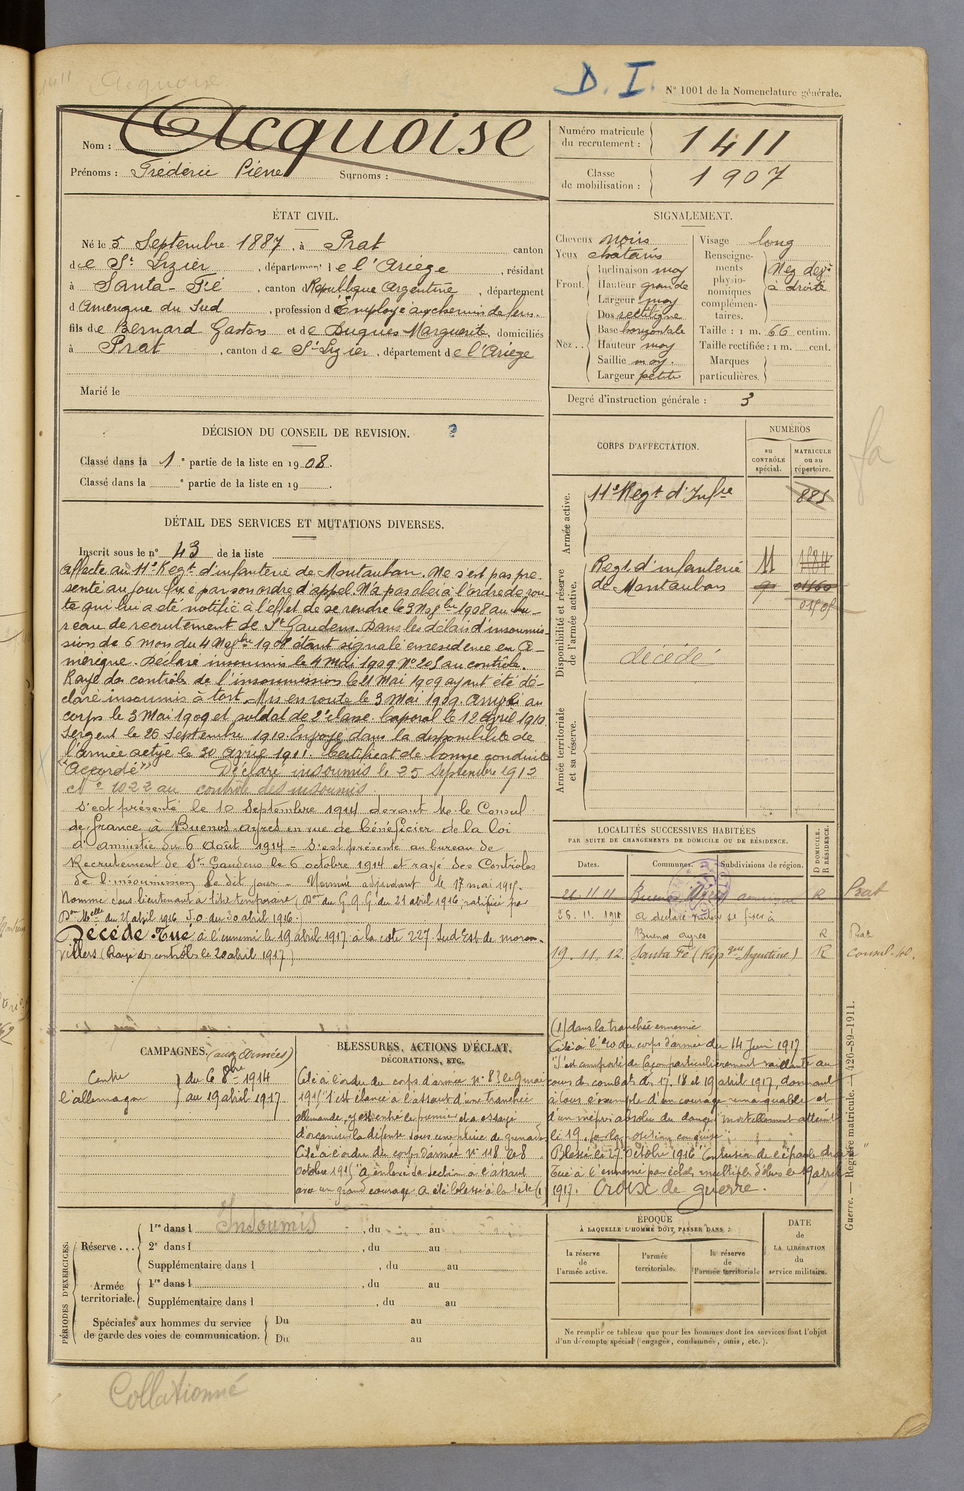 D. I.
N° 1001 de la Nomenclature générale.
Acquoise
Nom : Acquoise
Prénoms : Frédéric Pierre Surnoms :
Numéro matricule du recrutement : 1411
Classe de mobilisation : 1907
ÉTAT CIVIL.
Né le 5 Septembre 1887, à Prat canton
de St Lizier, département de l'Ariège, résidant
à Santa-Fé, canton République Argentine, département
d'Amérique du Sud, profession d'Employé aux chemins de fers.
fils de Bernard Gaston et de Dugues Marguerite, domiciliés
à Prat, canton de St Lizier, département de l'Ariège
Marié le
SIGNALEMENT.
Cheveux noirs
Yeux chatains
Front. Inclinaison moy
Hauteur grande
Largeur moy
Nez.. Dos rectiligne
Base horizontale
Hauteur moy
Saillie moy.
Largeur petite
Visage long
Renseignements physionomiques complémentaires. Nez dev. à droite
Taille : 1 m. 66 centim.
Taille rectifiée : 1 m. cent.
Marques particulières.
Degré d'instruction générale : 3
DÉCISION DU CONSEIL DE REVISION. ?
Classé dans la 1e partie de la liste en 1908.
Classé dans la e partie de la liste en 19 .
DÉTAIL DES SERVICES ET MUTATIONS DIVERSES.
Inscrit sous le n° 43 de la liste
Affecté au 11e Régt d'infanterie de Montauban. Ne s'est pas pré-
senté au jour fixé par son ordre d'appel. N'a pas obéi à l'ordre de rou-
te qui lui a été notifié à l'effet de se rendre le 3 Nobre 1908 au bu-
reau de recrutement de St Gaudens. Dans les délais d'insoumis-
sion de 6 mois du 4 Nobre 1908 étant signalé en résidence en A-
mérique. Déclaré insoumis le 4 Mai 1909 N° 205 au contrôle.
Rayé des contrôles de l'insoumission le 11 Mai 1909 ayant été dé-
claré insoumis à tort. Mis en route le 3 Mai 1909. Arrivé au
corps le 3 Mai 1909 et soldat de 2e classe. Caporal le 12 avril 1910
Sergent le 26 Septembre 1910. Envoyé dans la disponibilité de
l'armée active le 30 Avril 1911. Certificat de bonne conduite
"Accordé" Déclaré insoumis le 25 Septembre 1912
N° 1022 au contrôle des insoumis.
S'est présenté le 10 Septembre 1914 devant M. le Consul
de france à Buenos-ayres en vue de bénéficier de la loi
d'amnistie du 6 Août 1914 - S'est présenté au bureau de
Recrutement de St Gaudens le 6 octobre 1914 et rayé des Contrôles
de l'insoumission le dit jour - Nommé adjudant le 17 mai 1915.
Nommé sous-lieutenant à titre temporaire (Don du G.Q.G. du 21 avril 1916, ratifiée par
Don Mlle du 27 avril 1916. J.O. du 30 avril 1916.
Décédé. Tué à l'ennemi le 19 avril 1917 à la cote 227 Sud Est de moron-
villers (Rayé des contrôles le 20 avril 1917)
CORPS D'AFFECTATION.
NUMÉROS
au CONTRÔLE spécial.
MATRICULE ou au répertoire.
Armée active.
11e Régt d'Infie 885
Disponibilité et réserve de l'armée active.
Régt d'infanterie 11 1584
de Montauban
décédé
Armée territoriale et sa réserve.
LOCALITÉS SUCCESSIVES HABITÉES
PAR SUITE DE CHANGEMENTS DE DOMICILE OU DE RÉSIDENCE.
Dates. Communes. Subdivisions de région. D DOMICILE. R RÉSIDENCE.
21.11.11 Buenos Ayres R Prat
a déclaré se fixer à
Buenos ayres R Prat
19.11.12 Santa Fé (Répque Argentine) R Consul.
CAMPAGNES. (aux Armées)
Contre l'allemagne du 6 8bre 1914 au 19 avril 1917.
BLESSURES, ACTIONS D'ÉCLAT, DÉCORATIONS, ETC.
Cité à l'ordre du corps d'armée n° 8 le 9 mai
1915 "S'est élancé à l'assaut d'une tranchée
allemande, y est entré le premier et a essayé
d'organiser la défense sous une pluie de grenades
Cité à l'ordre du corps d'armée N° 118 le 8
octobre 1915 "A enlevé sa section à l'assaut
avec un grand courage. A été blessé à la tête (1
(1) dans la tranchée ennemie
Cité à l'ordre du corps d'armée du 14 Juin 1917
"S'est comporté de façon particulièrement vaillante au
cours des combats des 17, 18 et 19 avril 1917, donnant
à tous l'exemple d'un courage remarquable et
d'un mépris absolu du danger mortellement atteint
le 19, sur la position conquise";
Blessé le 27 Octobre 1916 "Contusion de l'épaule droite"
Tué à l'ennemi par éclats multiples d'obus le 19 avril
1917. Croix de guerre.
PÉRIODES D'EXERCICES.
Réserve... 1re dans l Insoumis, du au
2e dans l , du au
Supplémentaire dans l , du au
Armée territoriale. 1re dans l , du au
Supplémentaire dans l , du au
Spéciales aux hommes du service de garde des voies de communication. Du au
Du au
ÉPOQUE
À LAQUELLE L'HOMME DOIT PASSER DANS :
la réserve de l'armée active.
l'armée territoriale.
la réserve de l'armée territoriale
DATE DE LA LIBÉRATION du service militaire.
Ne remplir ce tableau que pour les hommes dont les services font l'objet
d'un décompte spécial (engagés, condamnés, omis, etc.).
Guerre. — Registre matricule. — 426-89-1911.
Collationné